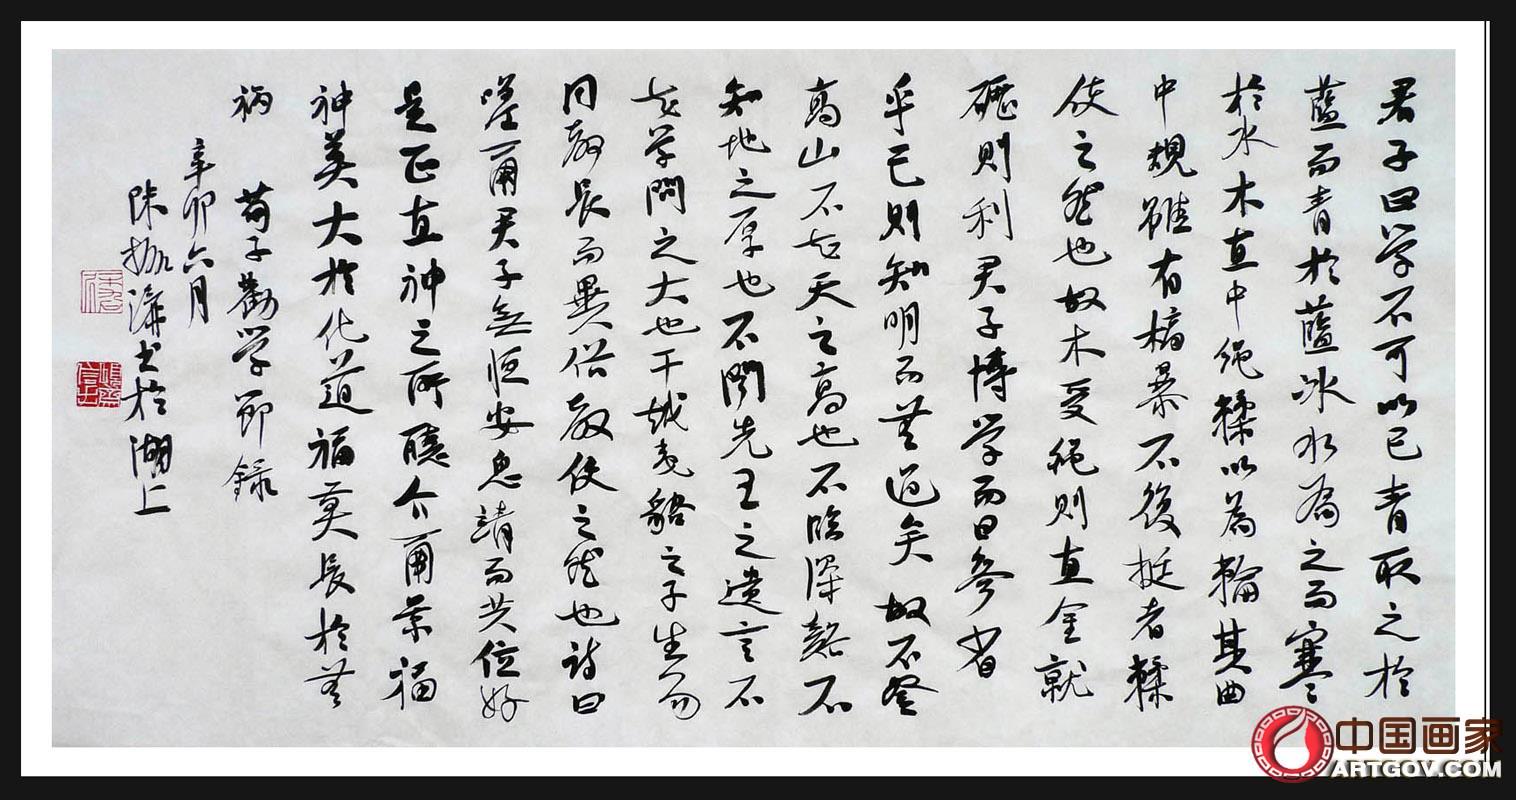 君子曰学不可以已青取之於
藍而青於藍冰水為之而寒
於水木直中绳輮以為輪其曲
中規雖有槁暴不復挺者輮
使之然也故木受绳则直金就
礪則利君子博学而日参省
乎己则知明而無過矣故不登
高山不知天之高也不临深谿不
知地之厚也不闻先王之遗言不
知学問之大也干越夷貉之子生而
同聲長而異俗教使之然也诗曰
嗟爾君子無恒安息靖共位好
是正直神之所聽介爾景福
神莫大於化道福莫長於無
祸 荀子勸学節錄
辛卯六月
陈振濂书於湖上
中国画家
ARTGOV.COM